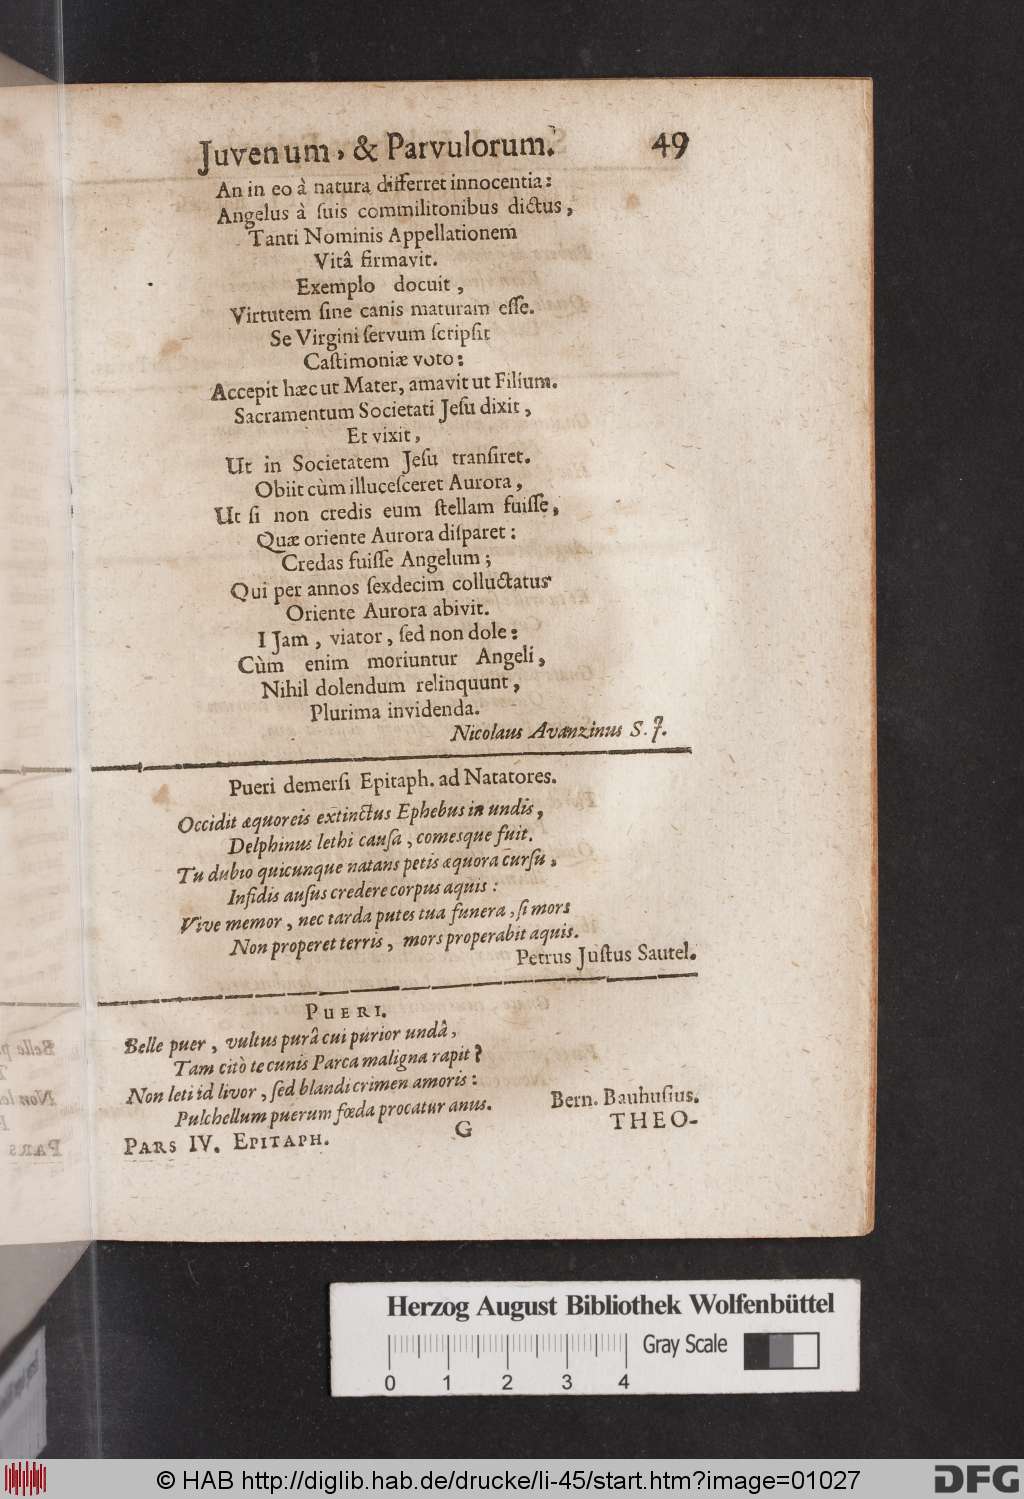 Juvenum, & Parvulorum. 49
An in eo à natura differret innocentia:
Angelus à ſuis commilitonibus dictus,
Tanti Nominis Appellationem
Vitâ firmavit.
Exemplo docuit,
Virtutem ſine canis maturam eſſe.
Se Virgini ſervum ſcripſit
Caſtimoniæ voto:
Accepit hæc ut Mater, amavit ut Filium.
Sacramentum Societati Jeſu dixit,
Et vixit,
Ut in Societatem Jeſu tranſiret.
Obiit cùm illuceſceret Aurora,
Ut ſi non credis eum ſtellam fuiſſe,
Quæ oriente Aurora diſparet:
Credas fuiſſe Angelum;
Qui per annos ſexdecim colluctatus
Oriente Aurora abivit.
I Jam, viator, ſed non dole:
Cùm enim moriuntur Angeli,
Nihil dolendum relinquunt,
Plurima invidenda.
Nicolaus Avanzinus S. J.
Pueri demerſi Epitaph. ad Natatores.
Occidit æquoreis extinctus Ephebus in undis,
Delphinus lethi cauſa, comesque fuit.
Tu dubio quicunque natans petis æquora curſu,
Infidis auſus credere corpus aquis:
Vive memor, nec tarda putes tua funera, ſi mors
Non properet terris, mors properabit aquis.
Petrus Juſtus Sautel.
PUERI.
Belle puer, vultus purâ cui purior undâ,
Tam citò te cunis Parca maligna rapit?
Non leti id livor, ſed blandi crimen amoris:
Pulchellum puerum fœda procatur anus.
Bern. Bauhuſius.
PARS IV. EPITAPH. G THEO-
Herzog August Bibliothek Wolfenbüttel
Gray Scale
0 1 2 3 4
© HAB http://diglib.hab.de/drucke/li-45/start.htm?image=01027
DFG